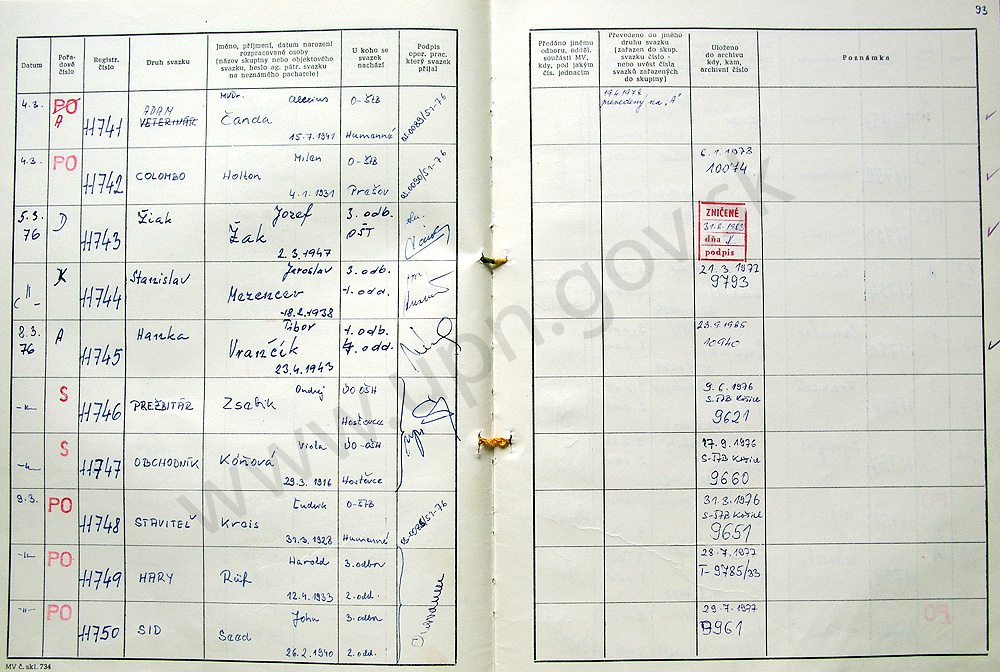 93
Datum
Pořa-
dové
číslo
Registr.
číslo
Druh svazku
Jméno, příjmení, datum narození
rozpracované osoby
(název skupiny nebo objektového
svazku, heslo ag. pátr. svazku
na neznámého pachatele)
U koho se
svazek
nachází
Podpis
oper. prac.
který svazek
přijal
Předáno jinému
odboru, odděl.
součásti MV,
kdy, pod jakým
čís. jednacím
Převedeno do jiného
druhu svazku
(zařazen do skup.
svazku číslo -
nebo uvést čísla
svazků zařazených
do skupiny)
Uloženo
do archivu
kdy, kam,
archivní číslo
Poznámka
4.3.
PO
A
11741
ADAM
VETERINÁR
MVDr.
Alexius
Čanda
15.7.1941
O-ŠtB
Humenné
prevedený na "A"
4.3.
PO
11742
COLOMBO
Milan
Holton
4.1.1931
O-ŠtB
Prešov
6.1.1978
10074
5.3.
76
D
11743
Žiak
Jozef
Žak
2.3.1947
3. odb.
OŠT
ZNIČENÉ
dňa
podpis
-"-
K
11744
Stanislav
Jaroslav
Mezencev
18.2.1938
3. odb.
1. odd.
21.3.1977
9793
8.3.
76
A
11745
Hanka
Tibor
Vrančík
23.4.1943
1. odb.
7. odd.
23.9.1985
10940
-"-
S
11746
PREZBITÁR
Ondrej
Zsabik
ÚO OŠH
Hosťovce
9.6.1976
S-ŠtB Košice
9621
-"-
S
11747
OBCHODNÍK
Viola
Kóňová
29.3.1916
ÚO-OŠH
Hosťovce
17.9.1976
S-ŠtB Košice
9660
9.3.
PO
11748
STAVITEĽ
Ľudwik
Krais
31.3.1928
O-ŠtB
Humenné
31.8.1976
S-ŠtB Košice
9651
-"-
PO
11749
HARY
Harold
Rúf
12.4.1933
3. odbor
2. odd.
28.7.1977
T-9785/33
-"-
PO
11750
SID
John
Saad
26.2.1940
3. odbor
2. odd.
29.7.1977
9961
MV č. skl. 734
www.upn.gov.sk